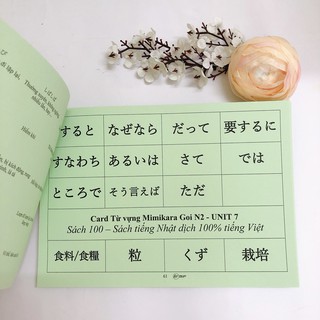 すると なぜなら だって 要するに
すなわち あるいは さて では
ところで そう言えば ただ
Card Từ vựng Mimikara Goi N2 - UNIT 7
Sách 100 – Sách tiếng Nhật dịch 100% tiếng Việt
食料/食糧 粒 くず 栽培